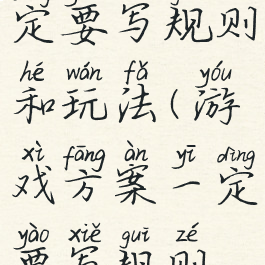 定要写规则
hé wán fǎ yóu
和玩法(游
xì fāng àn yī dìng
戏方案一定
yào xiě guī zé
要写规则